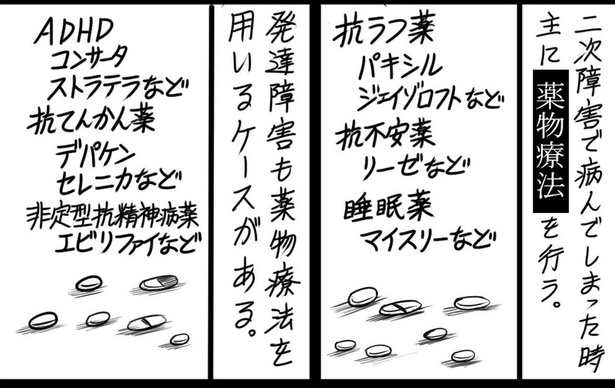 二次障害で病んでしまった時
主に薬物療法を行う。
抗ラフ薬
パキシル
ジェイゾロフトなど
抗不安薬
リーゼなど
睡眠薬
マイスリーなど
発達障害も薬物療法を
用いるケースがある。
ADHD
コンサータ
ストラテラなど
抗てんかん薬
デパケン
セレニカなど
非定型抗精神病薬
エビリファイなど